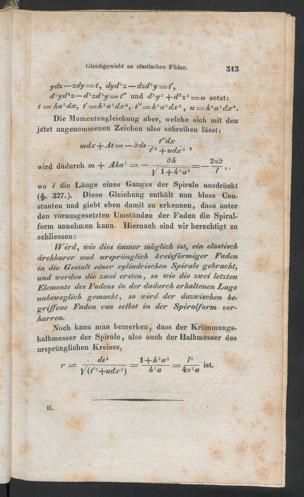 Gleichgewicht an elastischen Fäden. 313
ydz—zdy=t, dyd²z—dzd²y=t',
d²yd³z—d³zd³y=t'' und d²y²+d²z²=u setzt:
t=ha²dx, t'=h³a²dx³, t''=h⁵a²dx⁵, u=h⁴a²dx⁴.
Die Momentengleichung aber, welche sich mit den
jetzt angenommenen Zeichen also schreiben lässt:
mdx+At=—ϑds t''dx / t'²+udx²,
wird dadurch m + Aha² = — ϑh / √1+h²a² = — 2πϑ / l,
wo l die Länge eines Ganges der Spirale ausdrückt
(§. 327.). Diese Gleichung enthält nun bloss Con-
stanten und giebt eben damit zu erkennen, dass unter
den vorausgesetzten Umständen der Faden die Spiral-
form annehmen kann. Hiernach sind wir berechtigt zu
schliessen:
Wird, wie dies immer möglich ist, ein elastisch
drehbarer und ursprünglich kreisförmiger Faden
in die Gestalt einer cylindrischen Spirale gebracht,
und werden die zwei ersten, so wie die zwei letzten
Elemente des Fadens in der dadurch erhaltenen Lage
unbeweglich gemacht, so wird der dazwischen be-
griffene Faden von selbst in der Spiralform ver-
harren.
Noch kann man bemerken, dass der Krümmungs-
halbmesser der Spirale, also auch der Halbmesser des
ursprünglichen Kreises,
r = ds³ / √(t'²+udx²) = 1+h²a² / h²a = l² / 4π²a ist.
II.